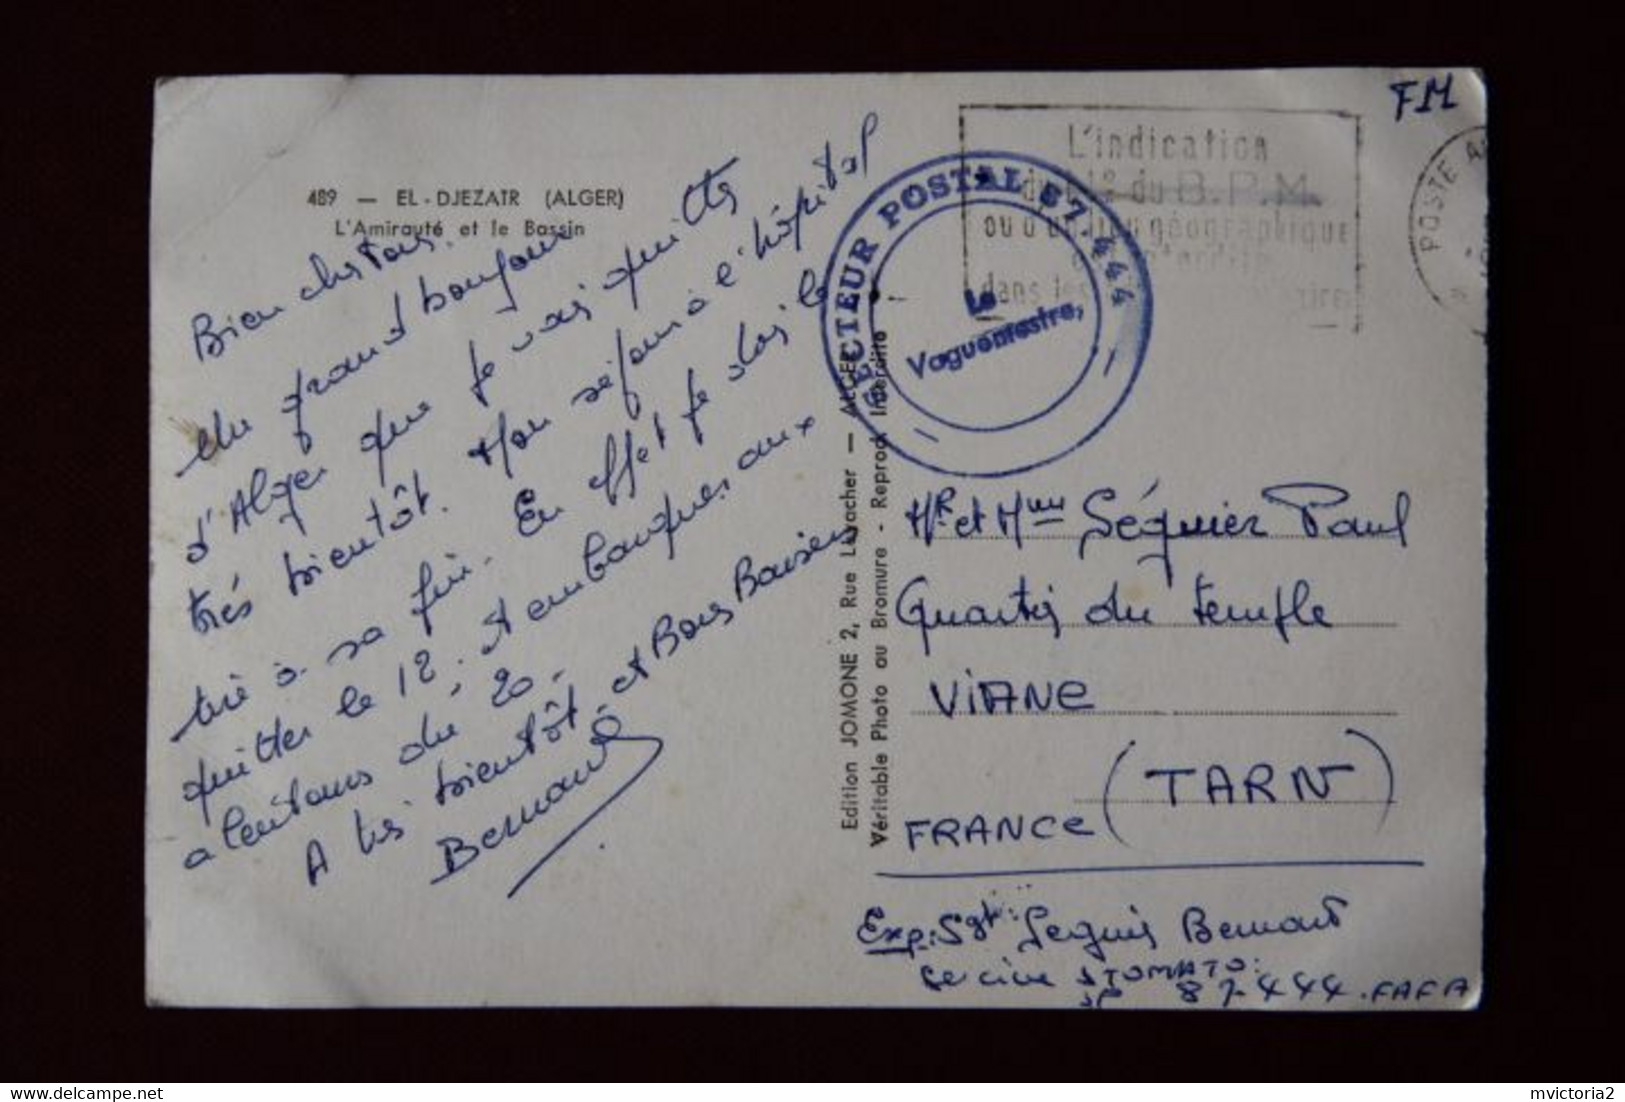 489 — EL-DJEZAIR (ALGER)
L'Amirauté et le Bassin
Bien chers tous.
Un grand bonjour
d'Alger que je vais quitter
très bientôt. Mon séjour à l'hôpital
tire à sa fin. En effet je dois le
quitter le 12. et embarquer aux
alentours du 20.
A très bientôt, et Bons Baisers
Bernard
Edition JOMONE 2, Rue Livacher — ALGER
Véritable Photo au Bromure - Reprod. Interdite
FM
L'indication
du N° du B.P.M.
ou d'un lieu géographique
dans les
POSTE A
SECTEUR POSTAL 87.444
Le
Vaguemestre,
Mr et Mme Séguier Paul
Quartier du temple
VIANE
(TARN)
FRANCE
Exp: Sgt: Seguier Bernard
Service STOMATO.
SP 87.444.FAFA
delcampe.net
mvictoria2